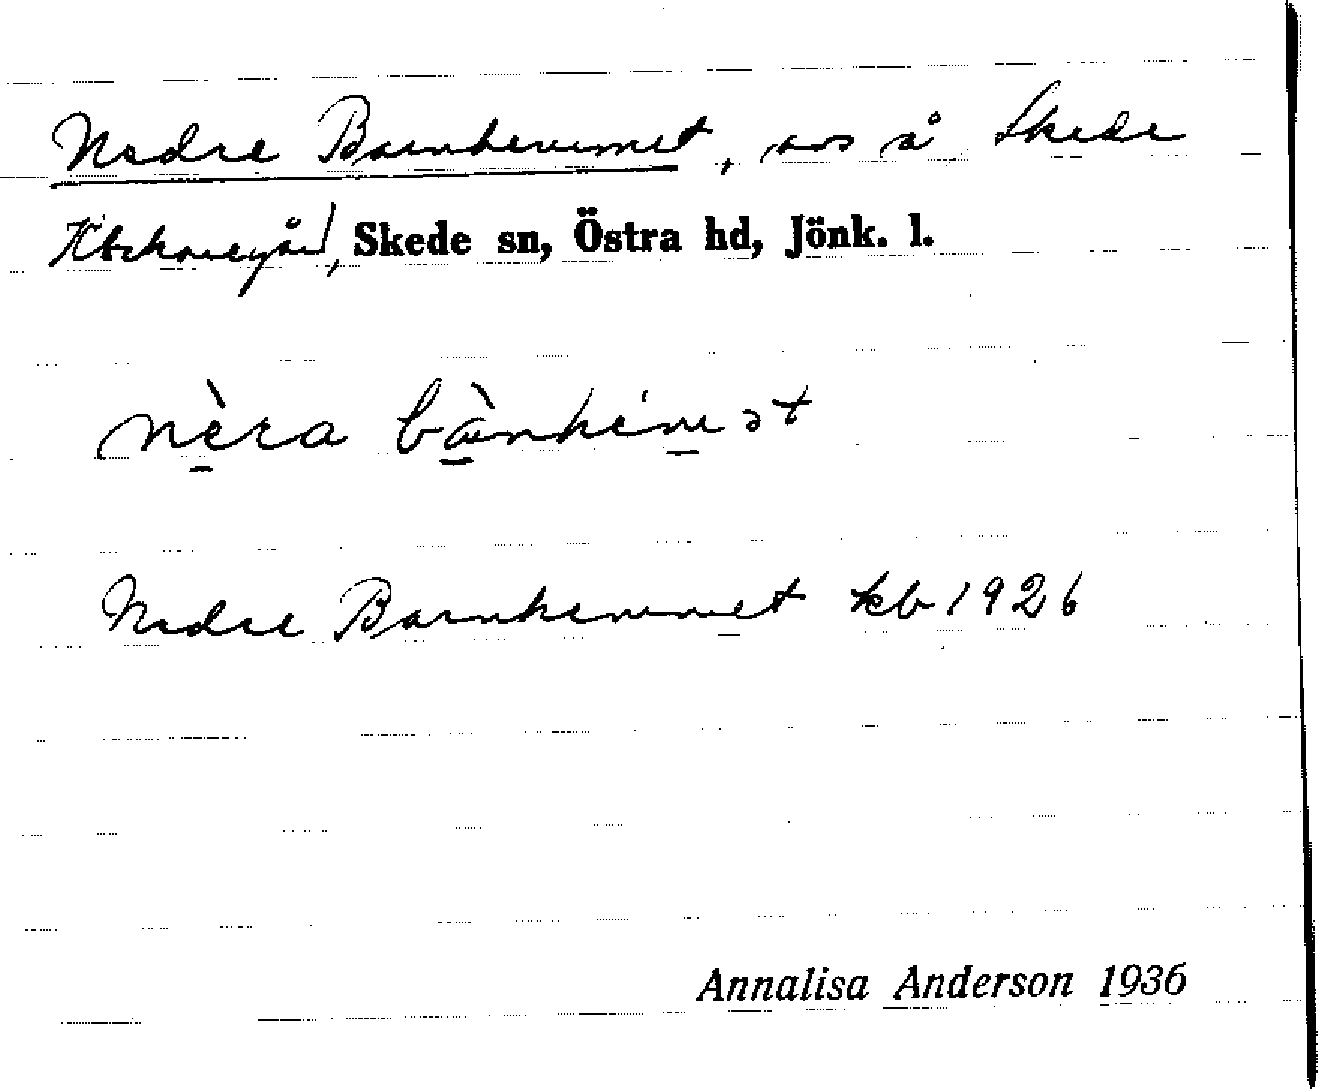 Nedre Barnhemmet, avs å Skede
Kbckaregård, Skede sn, Östra hd, Jönk. l.
nèra bànhém ət
Nedre Barnhemmet kb 1926
Annalisa Anderson 1936